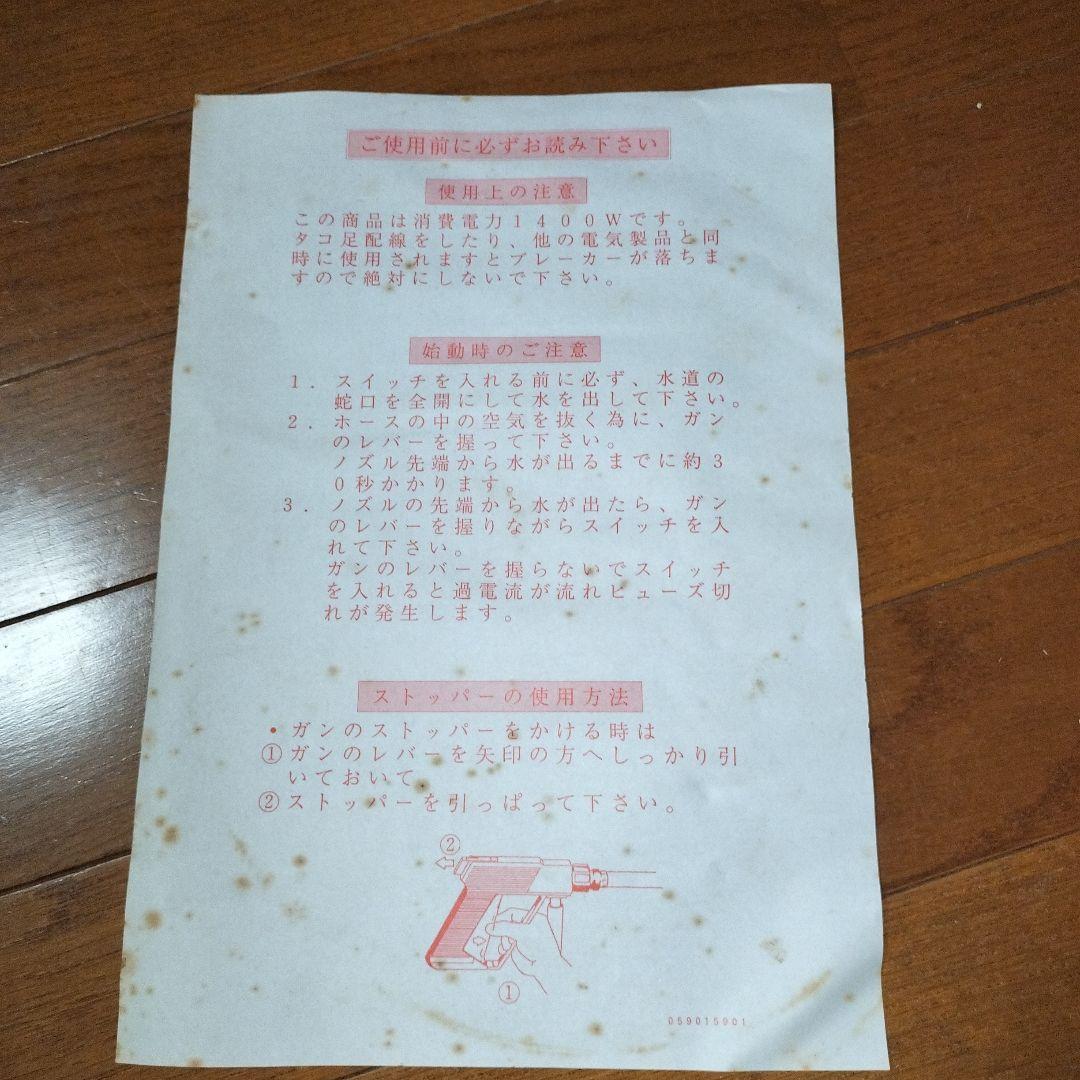 ご使用前に必ずお読み下さい
使用上の注意
この商品は消費電力1400Wです。
タコ足配線をしたり、他の電気製品と同
時に使用されますとブレーカーが落ちま
すので絶対にしないで下さい。
始動時のご注意
1．スイッチを入れる前に必ず、水道の
蛇口を全開にして水を出して下さい。
2．ホースの中の空気を抜く為に、ガン
のレバーを握って下さい。
ノズル先端から水が出るまでに約3
0秒かかります。
3．ノズルの先端から水が出たら、ガン
のレバーを握りながらスイッチを入
れて下さい。
ガンのレバーを握らないでスイッチ
を入れると過電流が流れヒューズ切
れが発生します。
ストッパーの使用方法
・ガンのストッパーをかける時は
①ガンのレバーを矢印の方へしっかり引
いておいて
②ストッパーを引っぱって下さい。
②
①
059015901